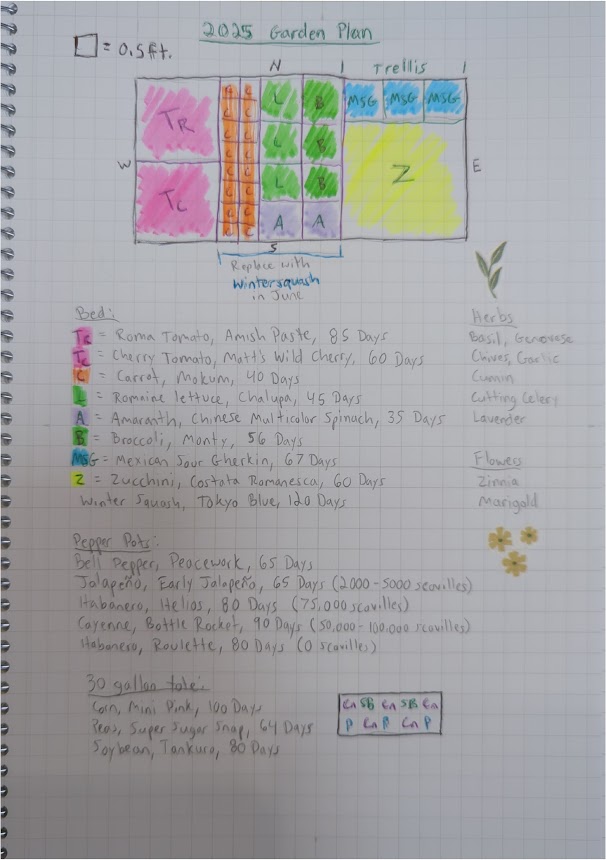 2025 Garden Plan
= 0.5ft.
N
Trellis
TR
C C
L
B
MSG MSG MSG
C C
C C
L
B
W
Z
E
C C
TC
C C
L
B
C C
C C
A
A
C C
S
Replace with
Winter squash
in June
Bed:
TR = Roma Tomato, Amish Paste, 85 Days
TC = Cherry Tomato, Matt's Wild Cherry, 60 Days
C = Carrot, Mokum, 40 Days
L = Romaine lettuce, Chalupa, 45 Days
A = Amaranth, Chinese Multicolor Spinach, 35 Days
B = Broccoli, Monty, 56 Days
MSG = Mexican Sour Gherkin, 67 Days
Z = Zucchini, Costata Romanesca, 60 Days
Winter Squash, Tokyo Blue, 120 Days
Herbs
Basil, Genovese
Chives, Garlic
Cumin
Cutting Celery
Lavender
Flowers
Zinnia
Marigold
Pepper Pots:
Bell Pepper, Peacework, 65 Days
Jalapeño, Early Jalapeño, 65 Days (2000-5000 scovilles)
Habanero, Helios, 80 Days (75,000 scovilles)
Cayenne, Bottle Rocket, 90 Days (50,000-100,000 scovilles)
Habanero, Roulette, 80 Days (0 scovilles)
30 gallon tote:
Corn, Mini Pink, 100 Days
Peas, Super Sugar Snap, 64 Days
Soybean, Tankuro, 80 Days
Cn SB Cn SB Cn
P Cn P Cn P